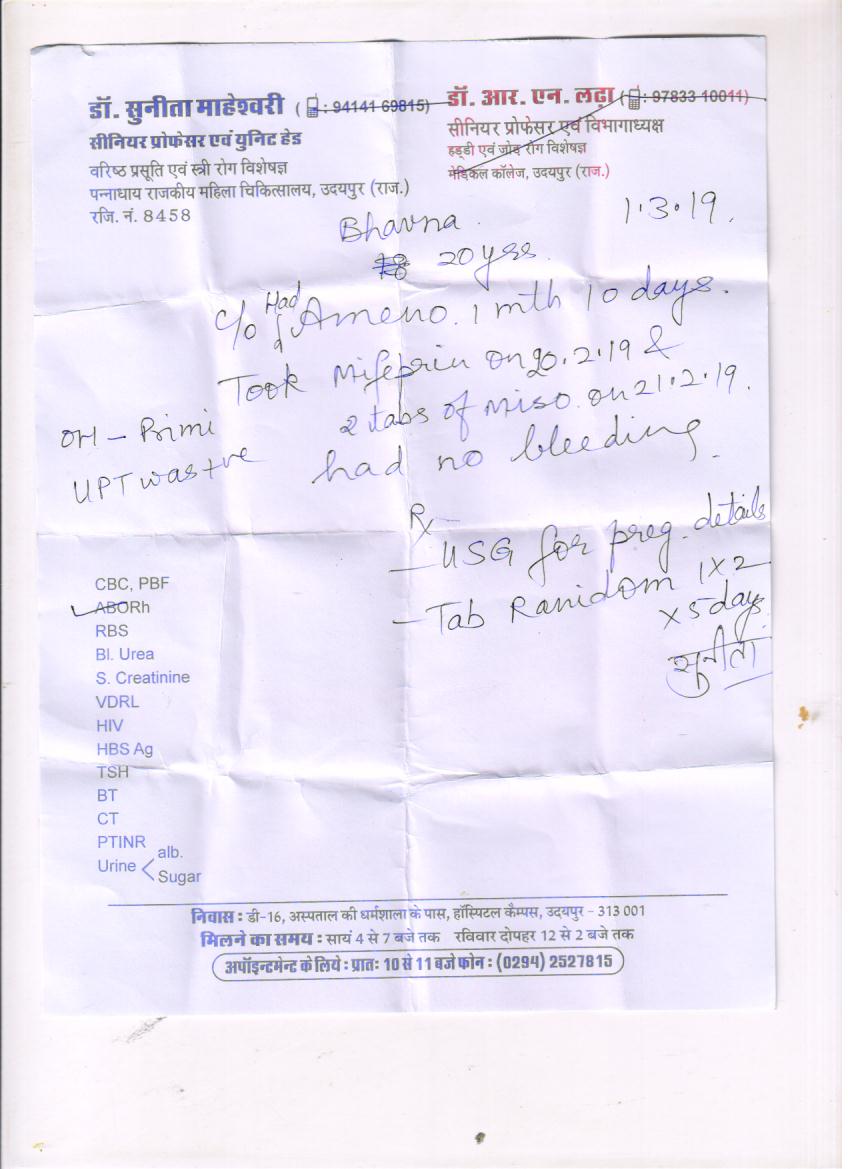 डॉ. सुनीता माहेश्वरी (: 94141 69815)
सीनियर प्रोफेसर एवं यूनिट हेड
वरिष्ठ प्रसूति एवं स्त्री रोग विशेषज्ञ
पन्नाधाय राजकीय महिला चिकित्सालय, उदयपुर (राज.)
रजि. नं. 8458
डॉ. आर. एन. लढ़ा (: 97833 10011)
सीनियर प्रोफेसर एवं विभागाध्यक्ष
हड्डी एवं जोड़ रोग विशेषज्ञ
मेडिकल कॉलेज, उदयपुर (राज.)
1.3.19.
Bhavna.
20 yrs.
c/o Had Ameno. 1 mth 10 days.
Took Mifeprin on 20.2.19 &
2 tabs of Miso. on 21.2.19.
had no bleeding.
OH - Primi
UPT was +ve
Rx
- USG for preg. details
- Tab Ranidom 1 x 2
x 5 days
सुनीता
CBC, PBF
ABORh
RBS
Bl. Urea
S. Creatinine
VDRL
HIV
HBS Ag
TSH
BT
CT
PTINR
Urine < alb.
Sugar
निवास : डी-16, अस्पताल की धर्मशाला के पास, हॉस्पिटल कैम्पस, उदयपुर - 313 001
मिलने का समय : सायं 4 से 7 बजे तक रविवार दोपहर 12 से 2 बजे तक
अपॉइन्टमेन्ट के लिये : प्रातः 10 से 11 बजे फोन : (0294) 2527815